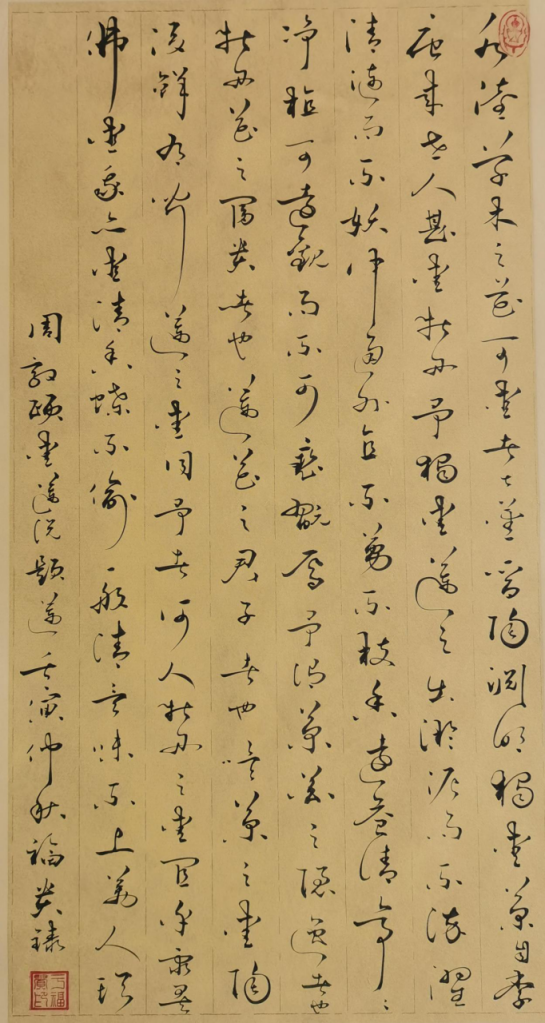 水陸草木之花可愛者甚蕃晉陶淵明獨愛菊自李
唐來世人甚愛牡丹予獨愛蓮之出淤泥而不染濯
清漣而不妖中通外直不蔓不枝香遠益清亭〻
淨植可遠觀而不可褻翫焉予謂菊花之隱逸者也
牡丹花之富貴者也蓮花之君子者也噫菊之愛陶
後鮮有聞蓮之愛同予者何人牡丹之愛宜乎眾矣
佛愛我亦愛清香蝶不偷一般清意味不上美人頭
周敦頤愛蓮說題蓮壬寅仲秋福貴